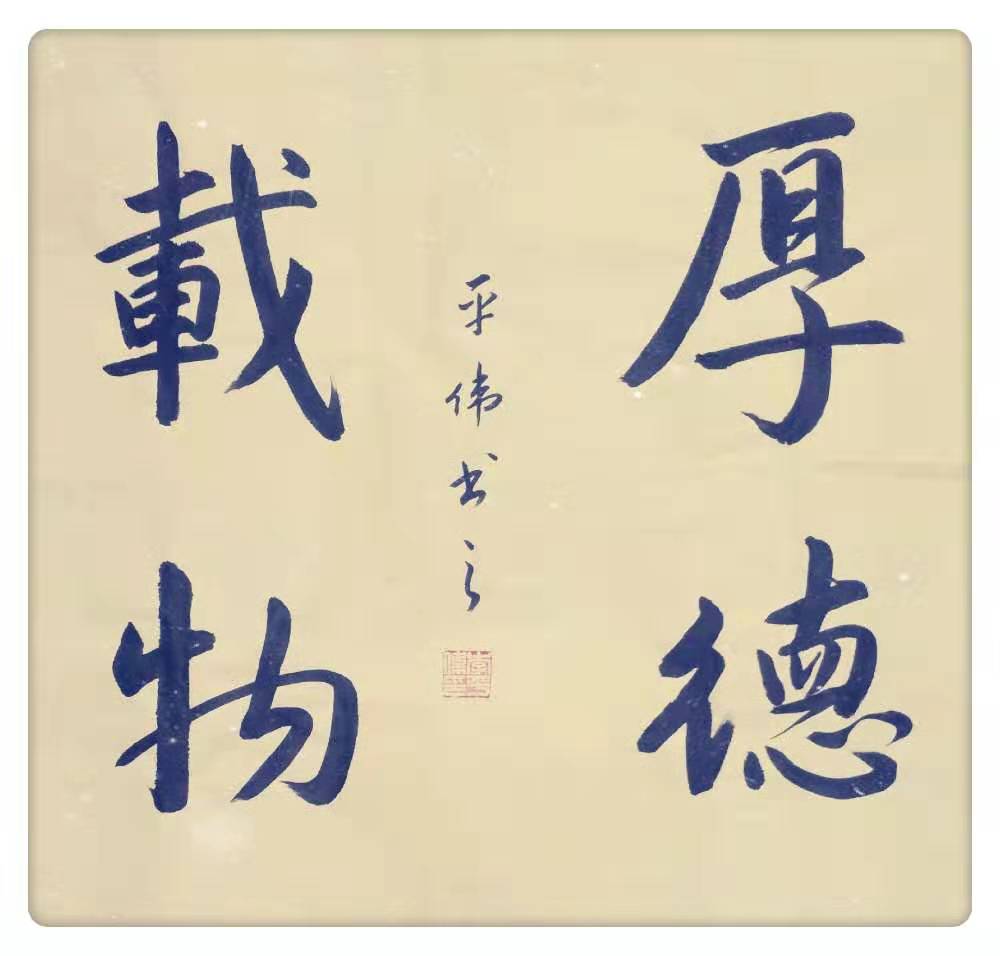 厚德
載物
平伟书之